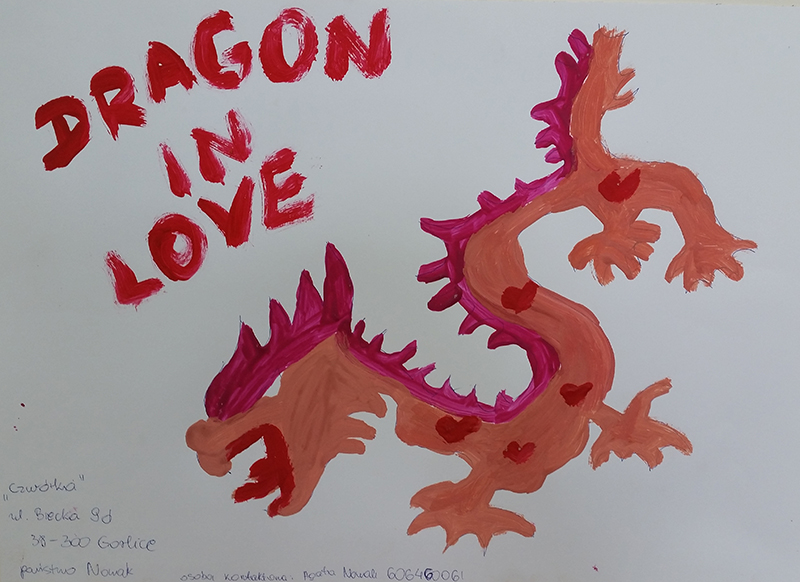 DRAGON
IN
LOVE
"Czwórka"
ul. Biecka 9d
38-300 Gorlice
państwo Nowak
osoba kontaktowa. Agata Nowak 606460061